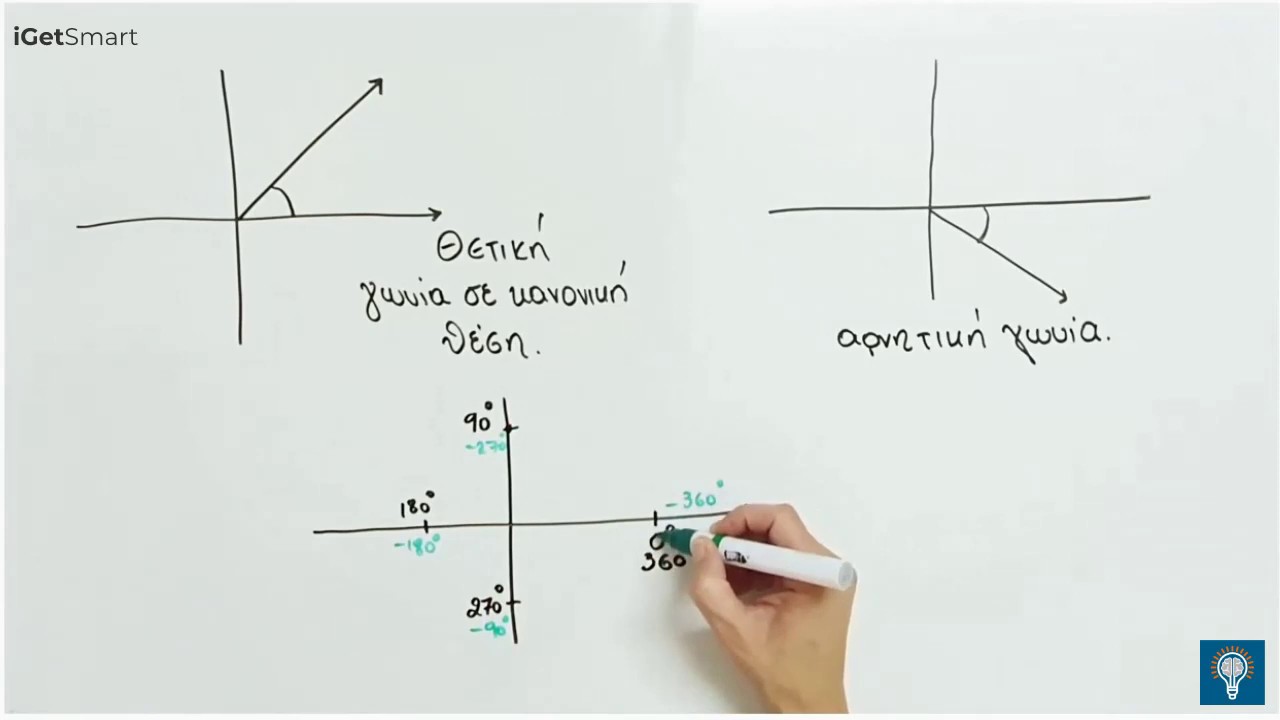 iGetSmart
Θετική
γωνία σε κανονική
θέση.
αρνητική γωνία.
90°
-270°
180°
-180°
-360°
0°
360
270°
-90°